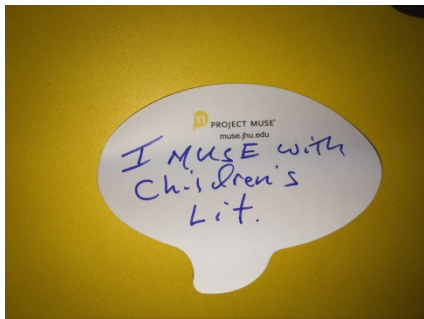 m PROJECT MUSE®
muse.jhu.edu
I MUSE with
Children's
Lit.